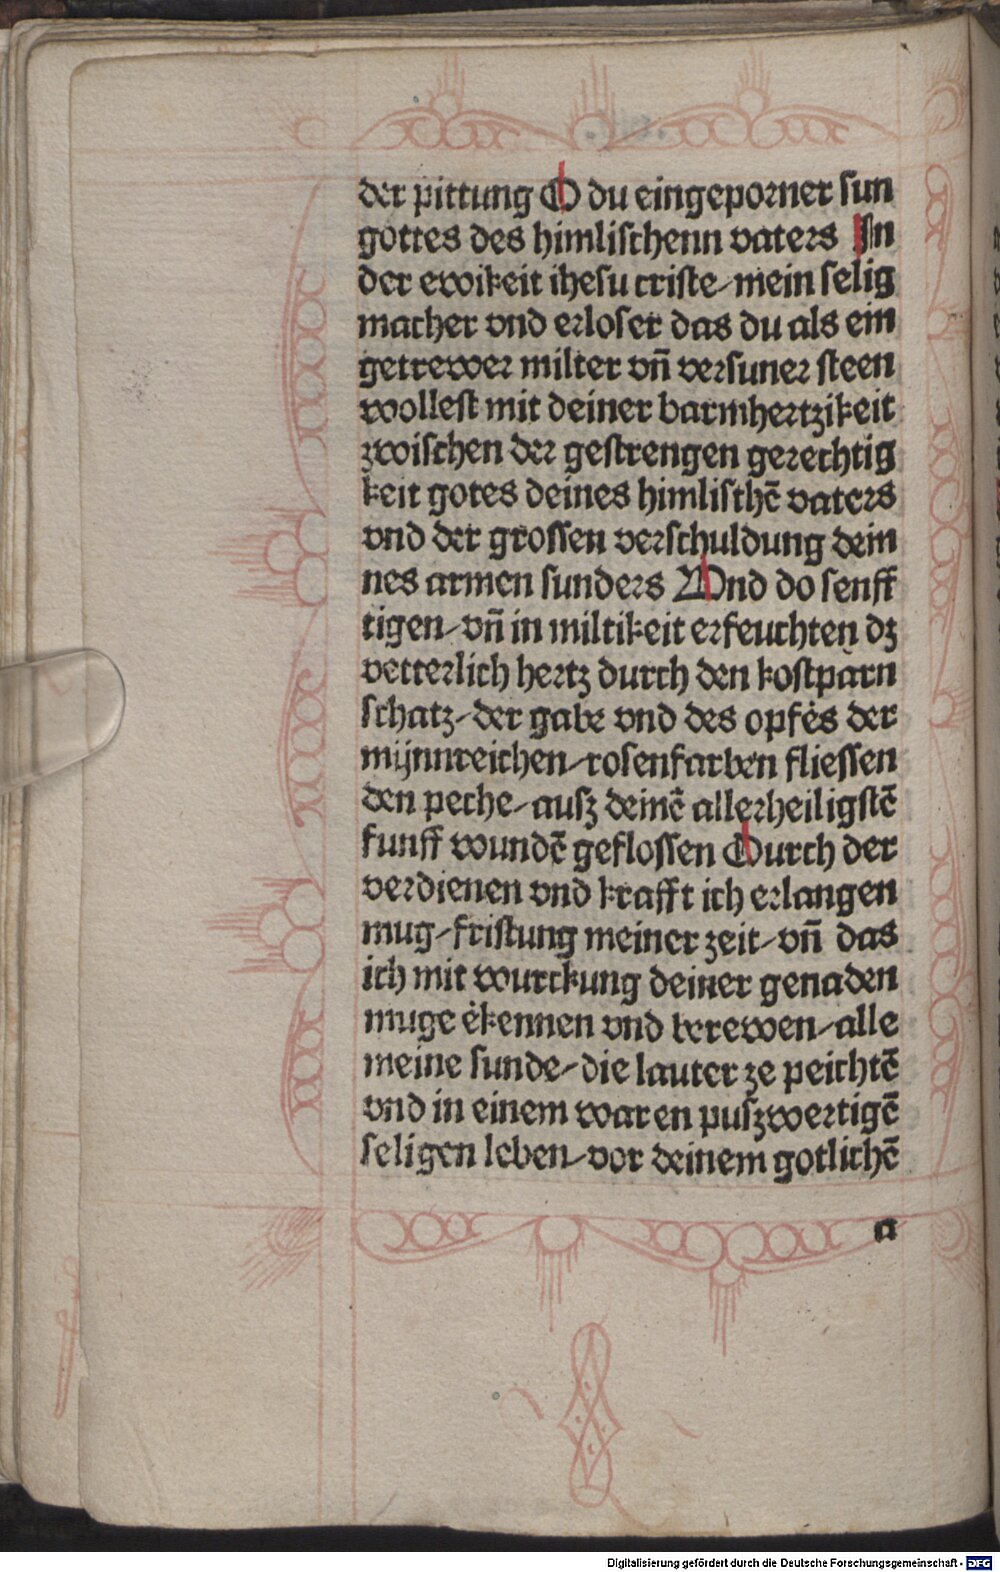 der pittung O du eingeporner sun
gottes des himlischenn vaters In
der ewikeit ihesu criste-mein selig
macher vnd erloser das du als ein
getrewer milter vn̄ versuner steen
wollest mit deiner barmhertzikeit
zwischen der gestrengen gerechtig
keit gotes deines himlischē vaters
vnd der grossen verschuldung dein
nes armen sunders Vnd do senff
tigen-vn̄ in miltikeit erfeuchten dz
vetterlich hertz durch den kostparn
schatz-der gabe vnd des opfes der
mijnnreichen-rosenfarben fliessen
den peche-ausz deinē allerheiligstē
funff wundē geflossen Durch der
verdienen vnd krafft ich erlangen
mug-fristung meiner zeit-vn̄ das
ich mit wurckung deiner genaden
muge ekennen vnd berewen-alle
meine sunde-die lauter ze peichtē
vnd in einem waren puszwertigē
seligen leben-vor deinem gotlichē
a
Digitalisierung gefördert durch die Deutsche Forschungsgemeinschaft - DFG